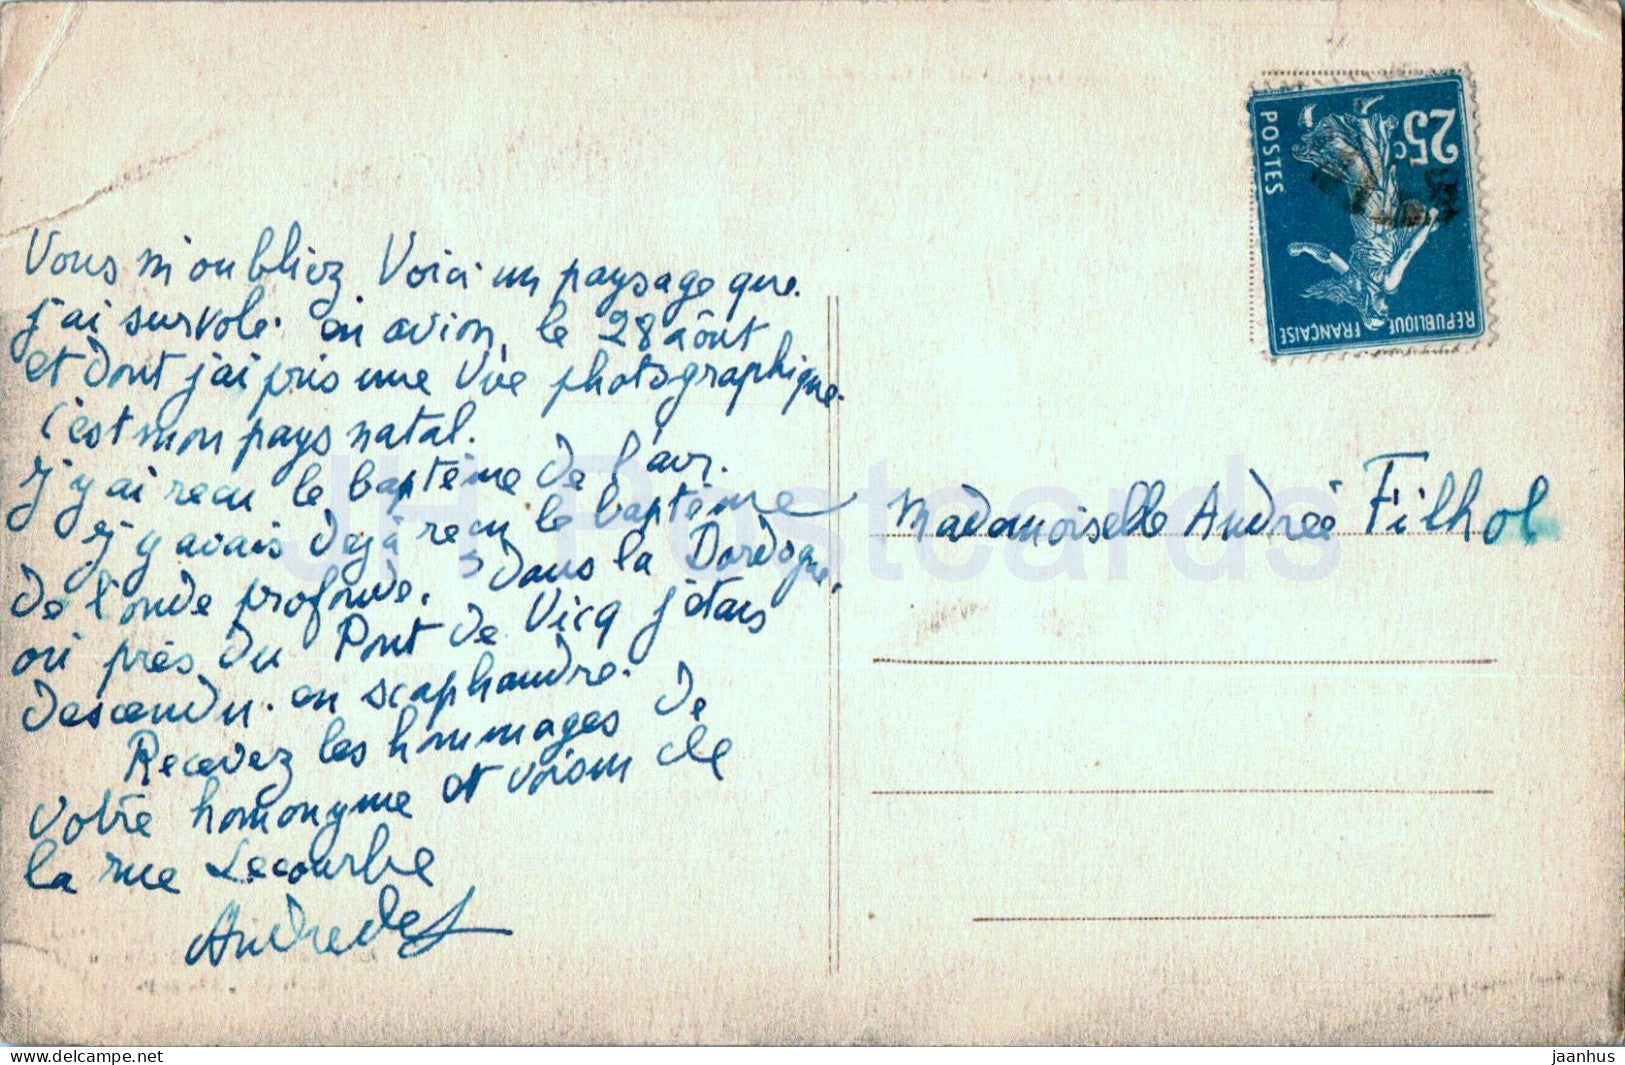 Vous m'oubliez Voici un paysage que
j'ai survolé en avion, le 28 août
et dont j'ai pris une vue photographique.
c'est mon pays natal.
J'y ai recu le baptême de l'air.
et j'y avais dejà recu le baptême
de l'onde profonde, dans la Dordogne,
où près du Pont de Vicq j'étais
descendu en scaphandre.
Recevez les hommages de
votre homonyme et voisin de
la rue Lecourbe
Mademoiselle Andrée Filhol
25c
POSTES
REPUBLIQUE FRANÇAISE
JH Postcards
www.delcampe.net
jaanhus